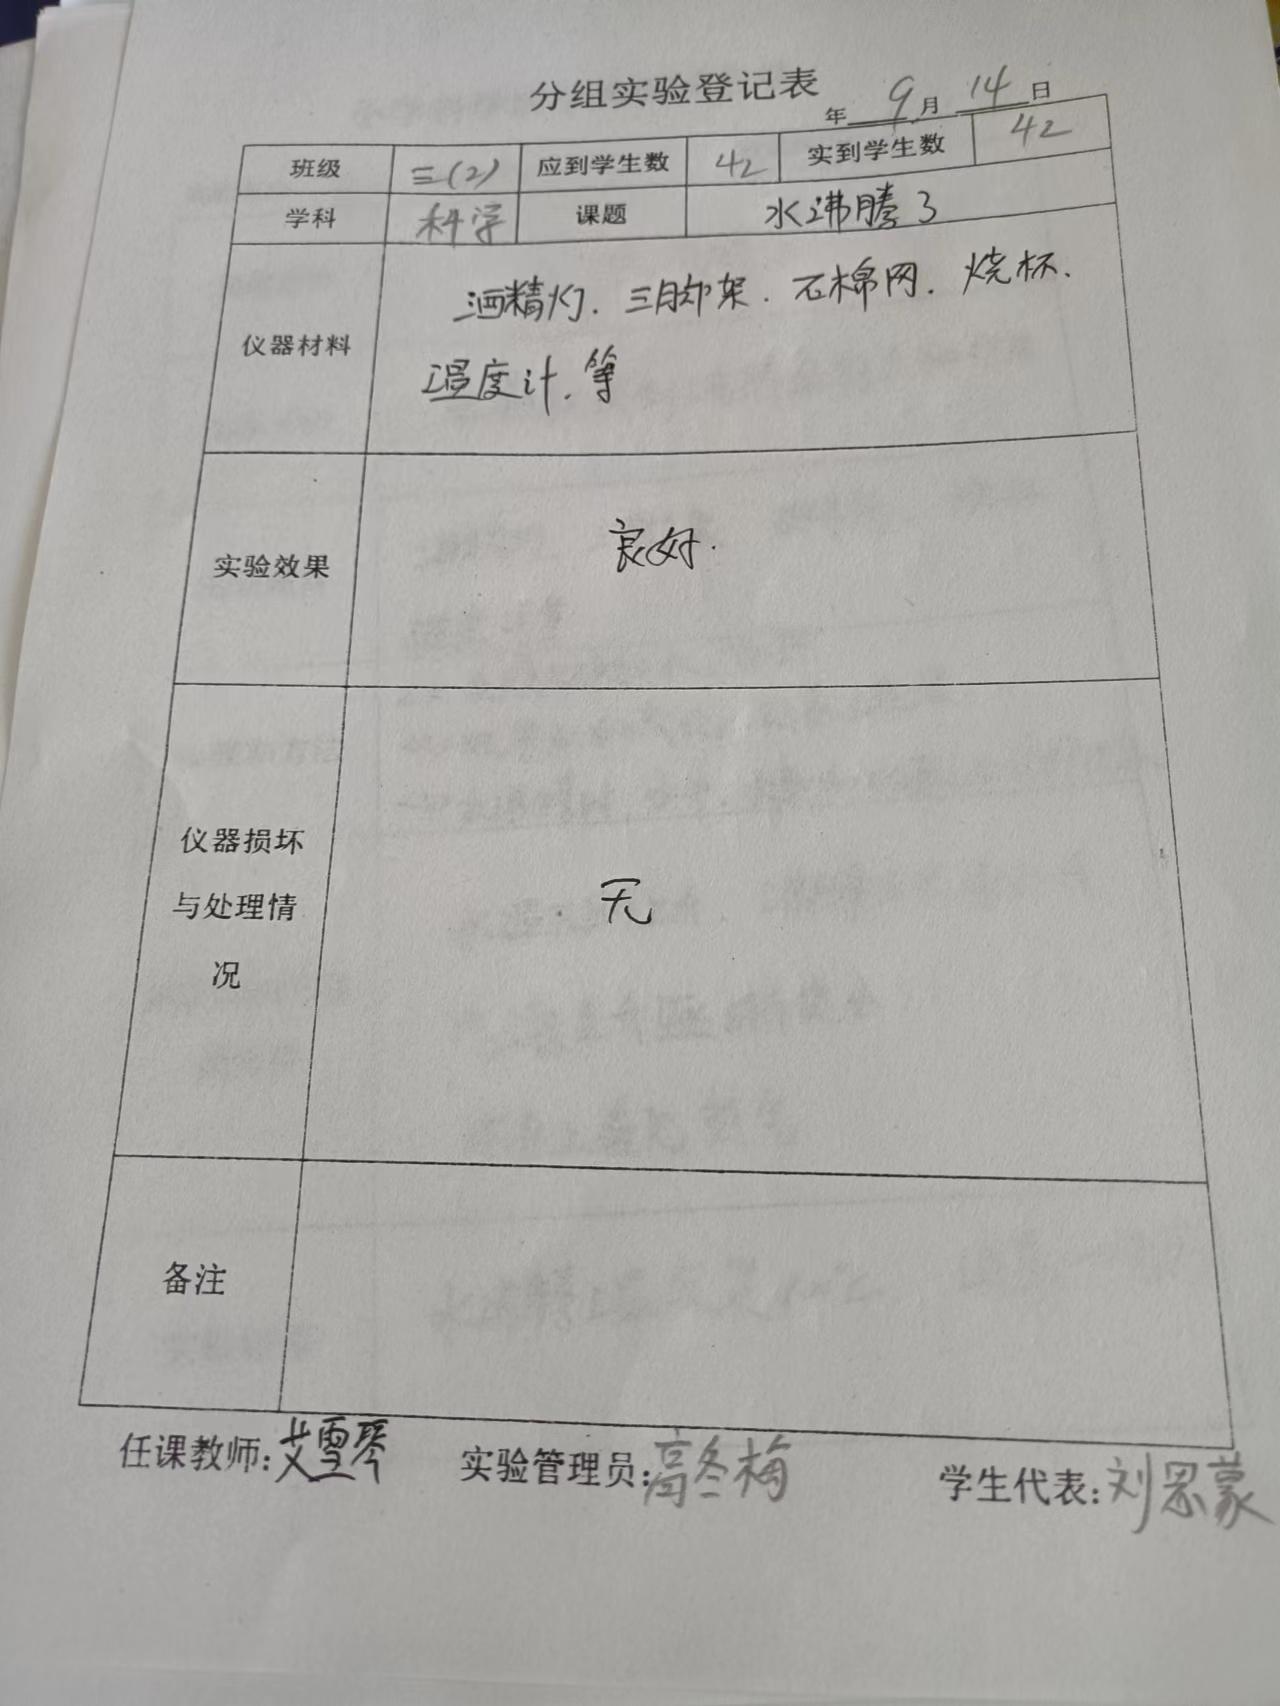 分组实验登记表
年 9 月 14 日
班级 三(2) 应到学生数 42 实到学生数 42
学科 科学 课题 水沸腾了
仪器材料 酒精灯. 三脚架. 石棉网. 烧杯.
温度计. 等
实验效果 良好.
仪器损坏
与处理情 无
况
备注
任课教师: 艾雪琴 实验管理员: 高冬梅 学生代表: 刘思蒙